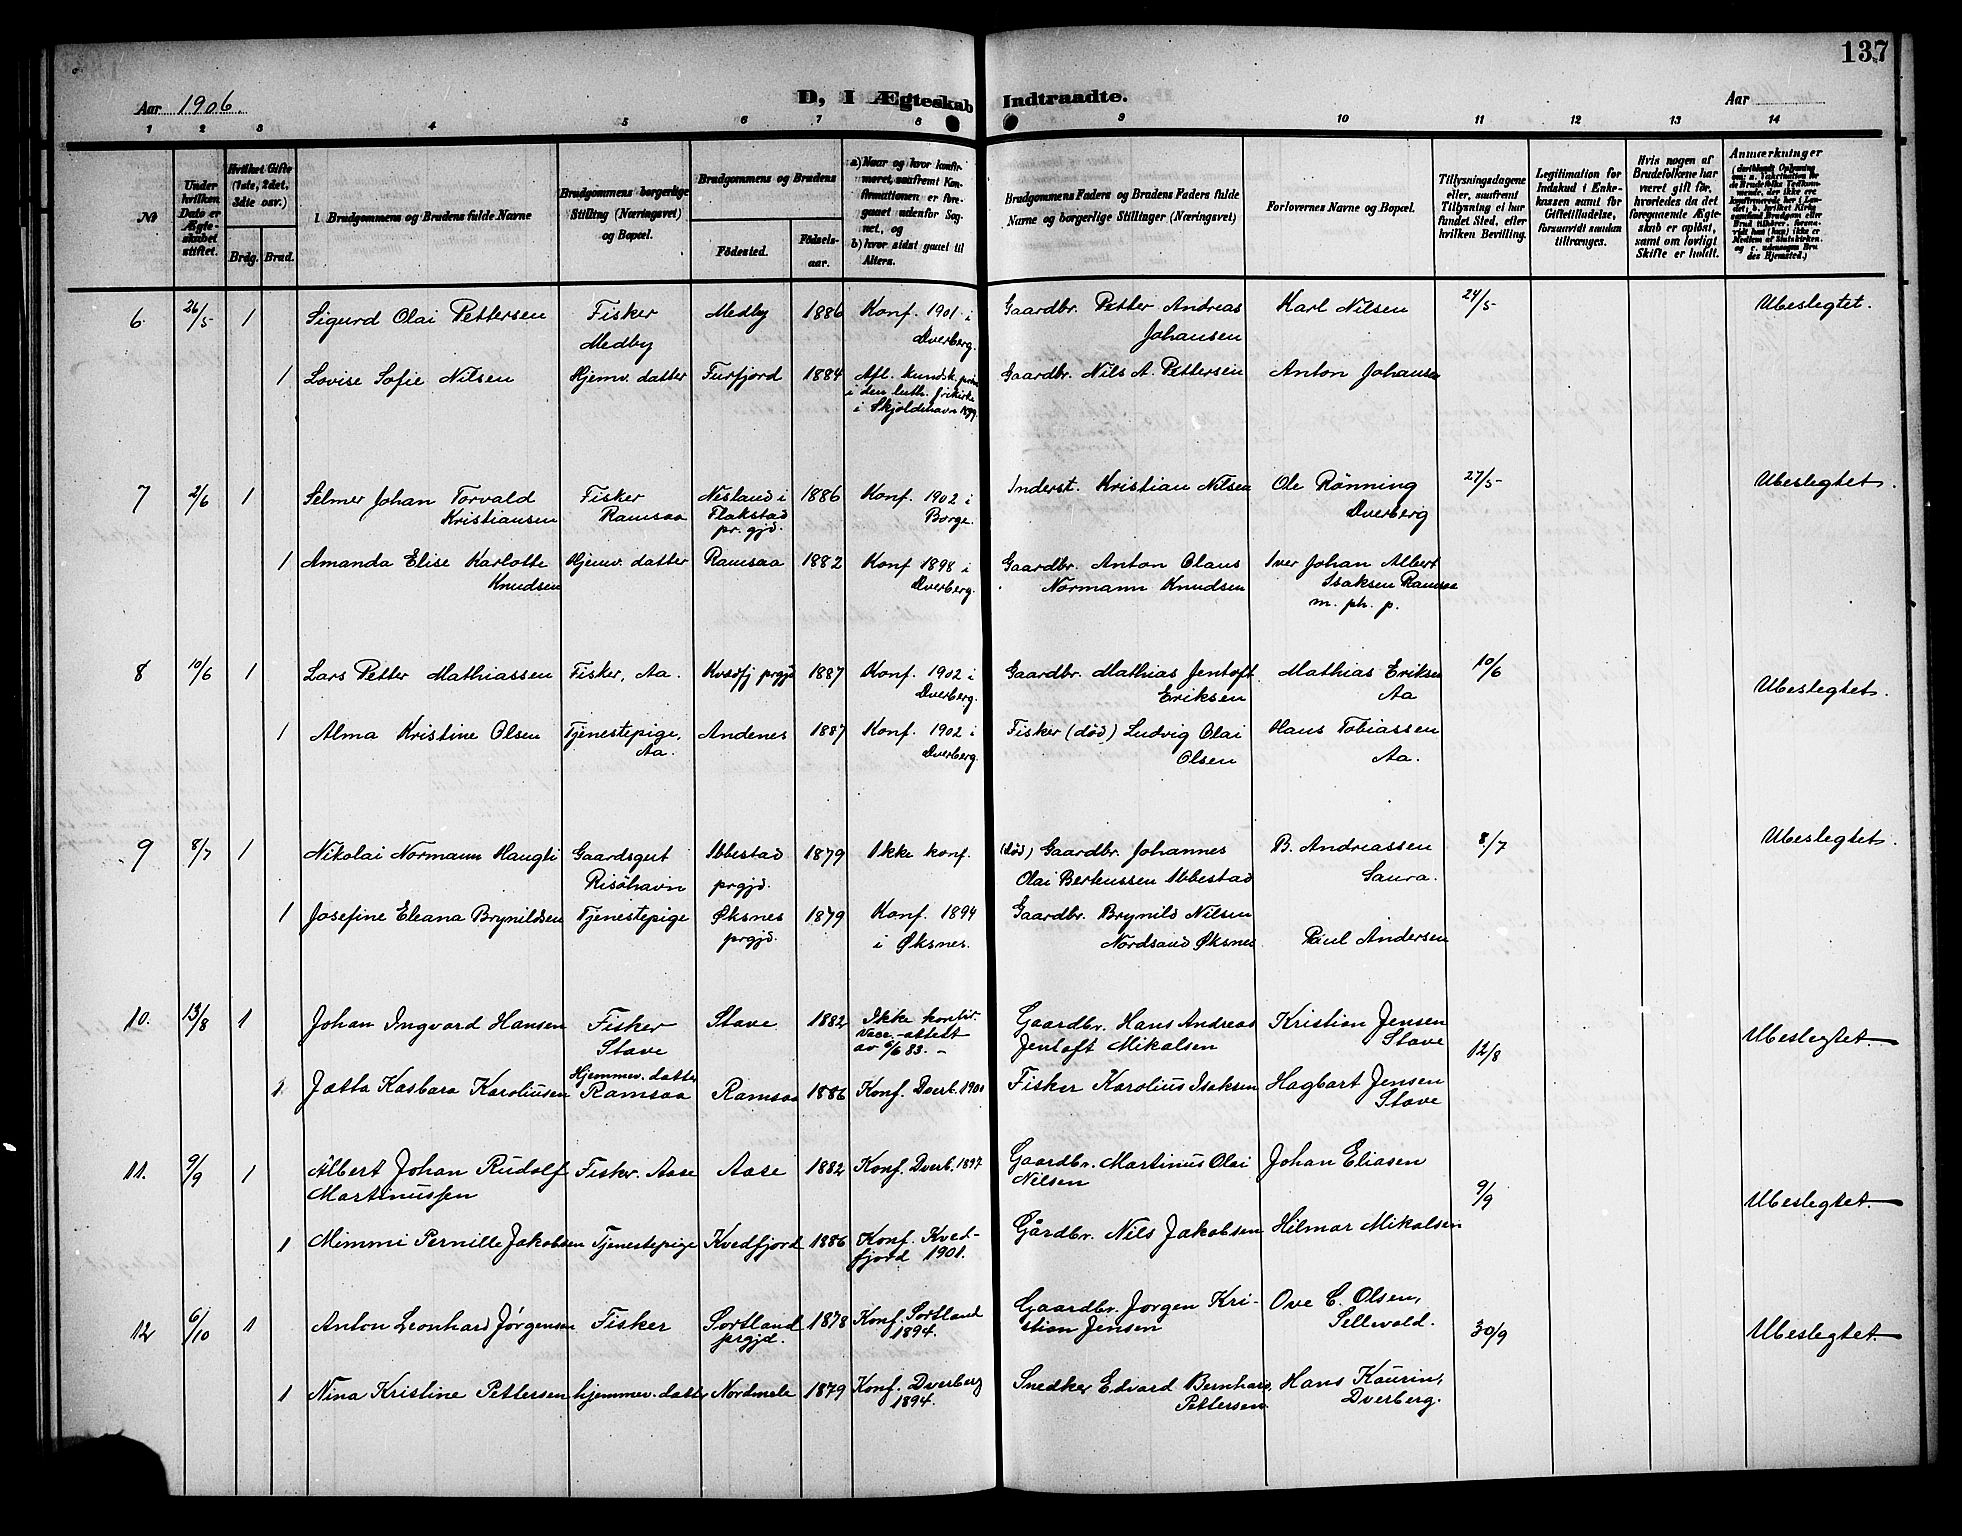 137
Aar 1906.
D, I Ægteskab Indtraadte.
Aar
1 2 3 4 5 6 7 8 9 10 11 12 13 14
No
Under hvilken Dato er Ægteskabet stiftet.
Hvilket Gifte (1ste, 2det, 3die osv.)
Brdg. Brud.
1. Brudgommens og Brudens fulde Navne
Brudgommens borgerlige Stilling (Næringsvei) og Bopæl.
Brudgommens og Brudens
Fødested.
Fødsels-aar.
a) Naar og hvor konfirmeret, saafremt Konfirmationen er foregaaet udenfor Sognet, og
b) hvor sidst gaaet til Alters.
Brudgommens Faders og Brudens Faders fulde Navne og borgerlige Stillinger (Næringsvei)
Forlovernes Navne og Bopæl.
Tillysningsdagene eller, saafremt Tillysning ei har fundet Sted, efter hvilken Bevilling.
Legitimation for Indskud i Enkekassen samt for Giftetilladelse, forsaavidt saadan tiltrænges.
Hvis nogen af Brudefolkene har været gift før, hvorledes da det foregaaende Ægteskab er opløst, samt om lovligt Skifte er holdt.
Anmærkninger
6 26/5 1 Sigurd Olai Pettersen Fisker Medby 1886 Konf. 1901 i Gaardbr. Petter Andreas Karl Nilsen 24/5 Ubeslegtet.
Medby Dverberg. Johansen
1 Lovise Sofie Nilsen Hjemv. datter Furfjord 1884 Afl. kundsk. Gaardbr. Nils A. Pettersen Anton Johansen
i den luth. frikirke
i Skjoldehavn 1899.
7 2/6 1 Selmer Johan Torvald Fisker Nesland i 1886 Konf. 1902 i Inderst. Kristian Nilsen Ole Rönning 27/5 Ubeslegtet.
Kristiansen Ramsaa Flakstad Borge. Dverberg
pr. gjd.
1 Amanda Elise Karlotte Hjemv. datter Ramsaa 1882 Konf 1898 i Gaardbr. Anton Olaus Iver Johan Albert
Knudsen Dverberg. Normann Knudsen Isaksen Ramsaa
m. ph. p.
8 10/6 1 Lars Petter Mathiassen Fisker, Aa. Kvædfj prgjd 1887 Konf. 1902 i Gaardbr. Mathias Jentoft Mathias Eriksen 10/6 Ubeslegtet.
Dverberg. Eriksen Aa
1 Alma Kristine Olsen Tjenestepige, Andenes 1887 Konf. 1902 i Fisker (död) Ludvig Olai Hans Tobiassen
Aa. Dverberg. Olsen Aa.
9 8/7 1 Nikolai Normann Haugli Gaardsgut Ibbestad 1879 Ikke konf. (död) Gaardbr. Johannes B. Andreassen 8/7 Ubeslegtet.
Risöhavn prgjd. Olai Berteussen Ibbestad Saura.
1 Josefine Eleana Brynildsen Tjenestepige Øksnes 1879 Konf. 1894 Gaardbr. Brynild Nilsen
prgjd. i Øksnes. Nordsand Øksnes Paul Andersen
10. 13/8 1 Johan Ingvard Hansen Fisker Stave 1882 Ikke Gaardbr. Hans Andreas Kristian Jensen 12/8 Ubeslegtet.
Stave vacc.-attest Jentoft Mikalsen Stave
av 6/6 83. –
1 Jatta Kasbara Karoliusen Hjemmev. datter Ramsaa 1886 Konf. Dverb. Fisker Karolius Isaksen Hagbart Jensen
Ramsaa Stave
11. 9/9 1 Albert Johan Rudolf Fisker. Aase Aase 1882 Konf. Dverb. 1897 Gaardbr. Martinus Olai Johan Eliasen 9/9 Ubeslegtet.
Martinussen Nilsen
1 Mimmi Pernille Jakobsen Tjenestepige Kvedfjord 1886 Konf. Kved- Gårdbr. Nils Jakobsen Hilmar Mikalsen
fjord 1901.
12 6/10 1 Anton Leonhard Jørgensen Fisker Sortland 1878 Konf. Sortland Gaardbr. Jørgen Kri- Ove C. Olsen, 30/9 Ubeslegtet.
prgjd. 1894. stian Jensen Sellevold.
1 Nina Kristine Pettersen hjemmev. datter Nordmele 1879 Konf. Dverberg Snedker Edvard Bernhard Hans Kaurin,
1894. Pettersen Dverberg.